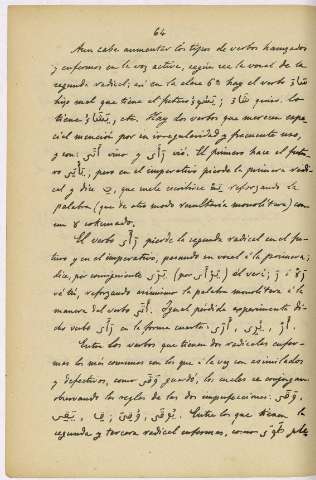 64
Aun cabe aumentar los tipos de verbos hamzados
y enfermos en la voz activa, según sea la vocal de la
segunda radical; así en la clase 6ª hay el verbo
hizo mal que tiene el futuro quiso, lo
tiene, etc. Hay dos verbos que merecen espe
cial mención por su irregularidad y frecuente uso,
y son: أتى vino y رأى vió. El primero hace el futu-
ro يأتى, pero en el imperativo pierde la primera radi-
cal y dice تِ, que suele escribirse تِهْ, reforzando la
palabra (que de otro modo resultaria monolitera) con
un ه cotinado.
El verbo رأى pierde la segunda radical en el fu-
turo y en el imperativo, pasando su vocal á la primera;
dice, por consiguiente يرى (por يرأى) él verá; رَ ó رَهْ
vé tú, reforzando asimismo la palabra monolitera á la
manera del verbo أتى. Igual pérdida experimenta di-
cho verbo رأى en la forma cuarta: أرى, يرى, أرِ.
Entre los verbos que tienen dos radicales enfer-
mas lo más comunes son los que á la vez son asimilados
y defectivos, como وقى guardó, los cuales se conjugan
observando las reglas de las dos imperfecciones: وقى,
يقى, قِ, وُقِىَ, يوقى. Entre los que tienen la
segunda y tercera radical enfermas, como